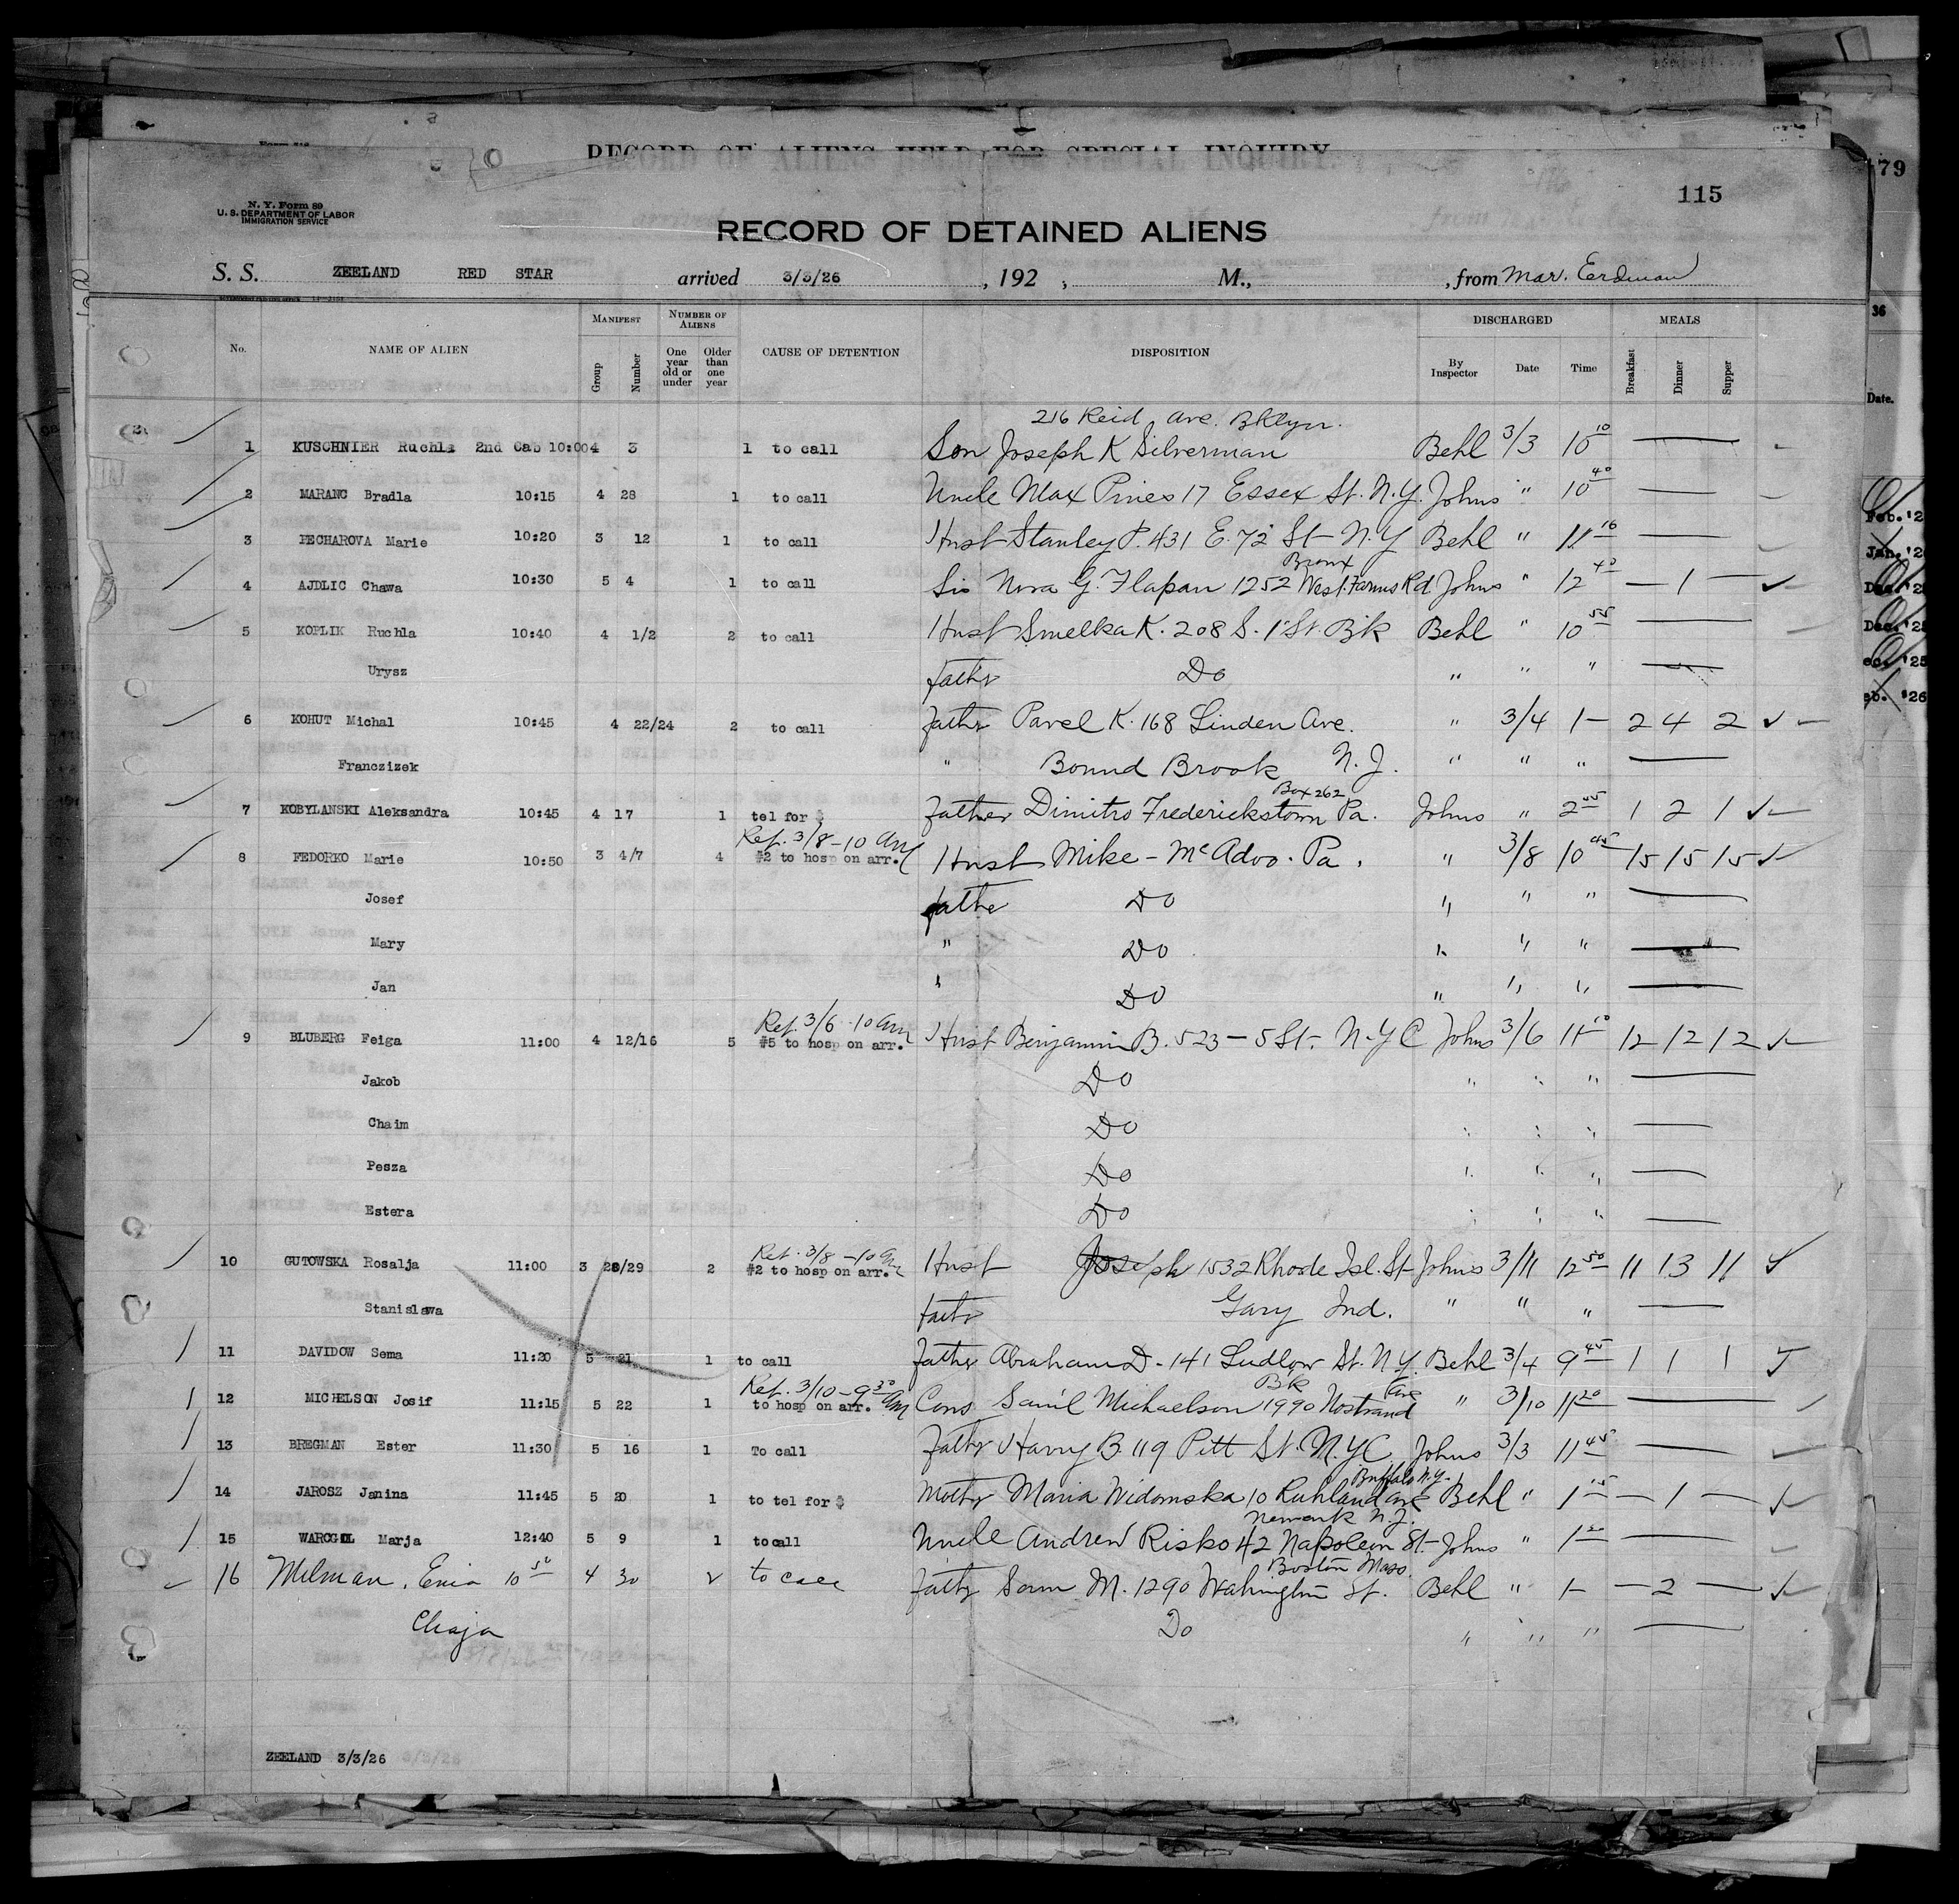 RECORD OF ALIENS HELD FOR SPECIAL INQUIRY
79
115
N. Y. Form 89
U. S. DEPARTMENT OF LABOR
IMMIGRATION SERVICE
RECORD OF DETAINED ALIENS
S. S. ZEELAND RED STAR arrived 3/3/26 , 192 , M., , from Mar. Erdman
No. NAME OF ALIEN MANIFEST Group Number NUMBER OF ALIENS One year old or under Older than one year CAUSE OF DETENTION DISPOSITION DISCHARGED By Inspector Date Time MEALS Breakfast Dinner Supper
36
Date.
216 Reid Ave. Bklyn.
1 KUSCHNIER Ruchla 2nd Cab 10:00 4 3 1 to call Son Joseph K Silverman Behl 3/3 10 10
2 MARANC Bradla 10:15 4 28 1 to call Uncle Max Pines 17 Essex St. N.Y. Johns " 10 40
3 PECHAROVA Marie 10:20 3 12 1 to call Husb Stanley P. 431 E. 72 St - N.Y Behl " 11 16
Bronx
4 AJDLIC Chawa 10:30 5 4 1 to call Sis Nora G. Flapan 1252 West. Farms Rd Johns " 12 40 — 1 —
5 KOPLIK Ruchla 10:40 4 1/2 2 to call Husb Smelka K. 208 S. 1 St. Bk Behl " 10 55
Urysz father Do " " "
6 KOHUT Michal 10:45 4 22/24 2 to call father Pavel K. 168 Linden Ave. " 3/4 1 — 2 4 2
Franczizek " Bound Brook N.J. " " "
Box 262
7 KOBYLANSKI Aleksandra 10:45 4 17 1 tel for $ Father Dimitro Frederickstown Pa. Johns " 2 45 1 2 1
Ret. 3/8 - 10 AM
8 FEDORKO Marie 10:50 3 4/7 4 #2 to hosp on arr. Husb Mike - McAdoo. Pa. " 3/8 10 45 15 15 15
Josef father Do " " "
Mary " Do " " "
Jan " Do " " "
Ret. 3/6 - 10 am
9 BLUBERG Feiga 11:00 4 12/16 5 #5 to hosp on arr. Husb Benjamin B. 523 - 5 St. N.Y C Johns 3/6 11 10 12 12 12
Jakob Do " " "
Chaim Do " " "
Pesza Do " " "
Estera Do " " "
Ret. 3/8 - 10 am
10 GUTOWSKA Rosalja 11:00 3 28/29 2 #2 to hosp on arr. Husb Joseph 1532 Rhode Isl. St Johns 3/11 12 50 11 13 11
Stanislawa fathr Gary Ind. " " "
11 DAVIDOW Sema 11:20 5 21 1 to call Father Abraham D - 141 Ludlow St. N.Y. Behl 3/4 9 45 1 1 1
Ret. 3/10 - 9 30 AM Bk Ave
12 MICHELSON Josif 11:15 5 22 1 to hosp on arr. Cons Samil Michaelson 1990 Nostrand " 3/10 11 20
13 BREGMAN Ester 11:30 5 16 1 To call Father Harry B. 119 Pitt St. N.Y.C Johns 3/3 11 45
Buffalo N.Y.
14 JAROSZ Janina 11:45 5 20 1 to tel for $ Mother Maria Widomska 10 Ruhland Ave Behl " 1 15 — 1 —
Newark N.J.
15 WARGGOL Marja 12:40 5 9 1 to call Uncle Andrew Risko 42 Napoleon St - Johns " 1 20
Boston Mass.
16 Milman, Enia 10 50 4 30 2 to call Fathr Sam M. 1290 Wahington St. Behl " 1 - — 2 —
Chaja Do " " "
ZEELAND 3/3/26